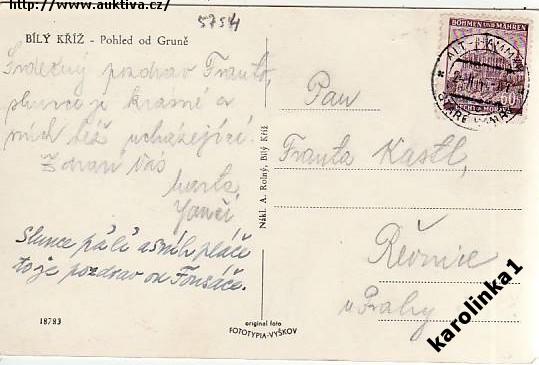 http://www.auktiva.cz/
5754
BÍLÝ KŘÍŽ - Pohled od Gruně
Srdečný pozdrav Franto,
slunce je krásné a
sníh též ucházející.
Zdraví Vás
Marta,
Slunce pálí a sníh pláče
to je pozdrav od Fousáče.
18783
Nákl. A. Rolný, Bílý Kříž
original foto
FOTOTYPIA-VYŠKOV
BÖHMEN UND MÄHREN
ČECHY A MORAVA
60
ALT
STARÉ HAMRY
Pan
Franta Kastl,
Řevnice
u Prahy
karolinka1